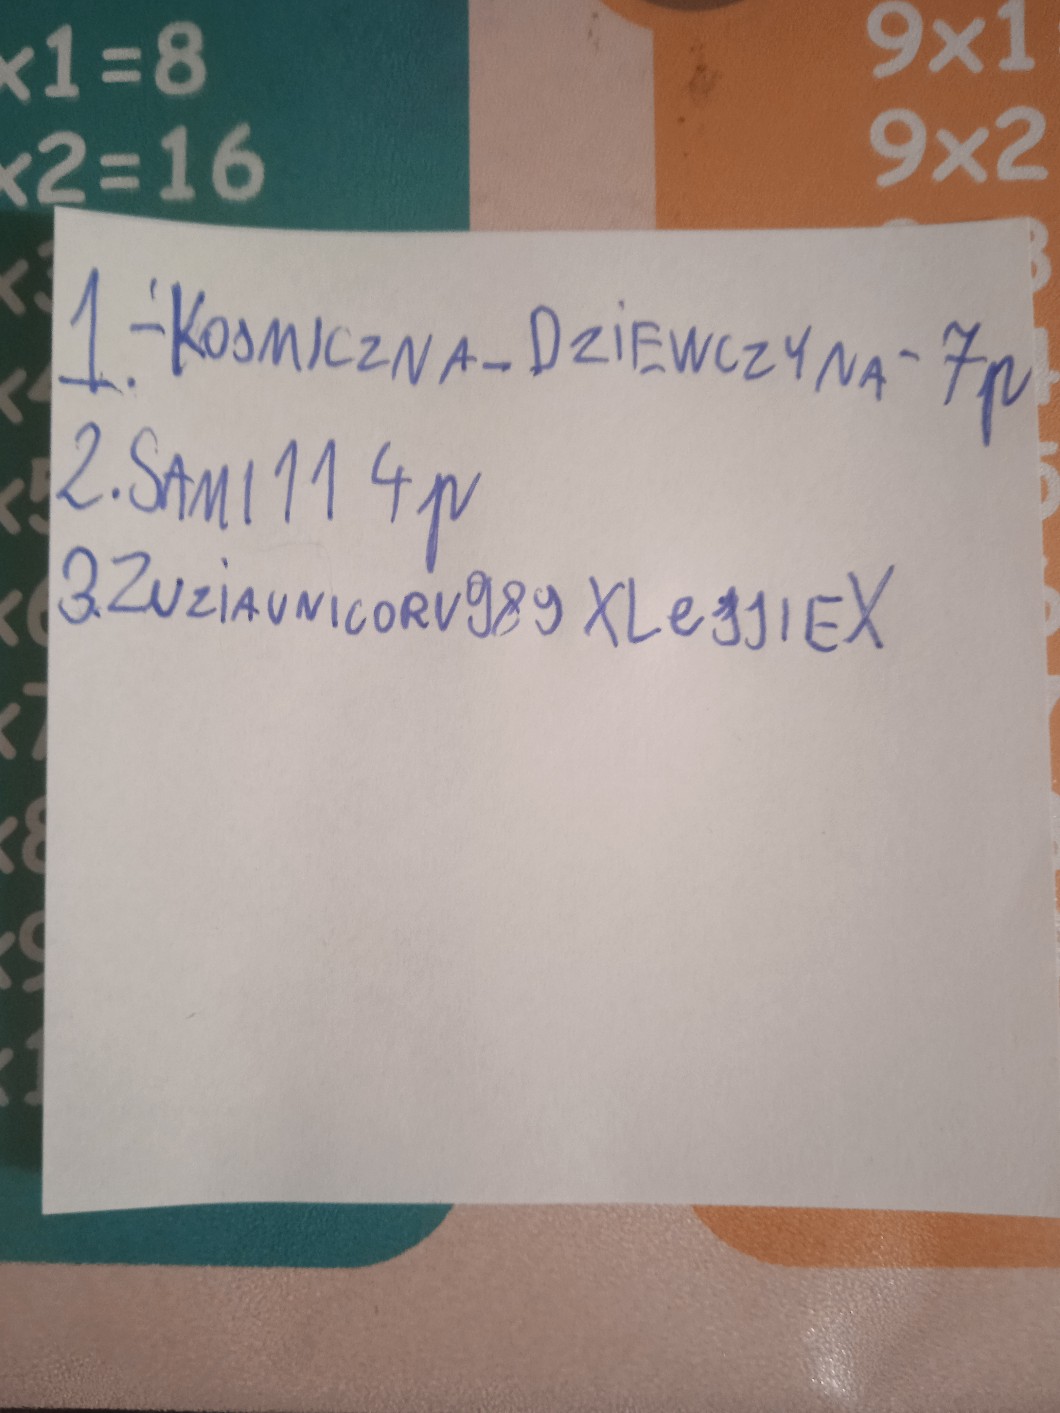 x1=8
9x1
x2=16
9x2
1.-KOSMICZNA-DZIEWCZYNA-7p
2.SAMI11 4p
3.ZUZIAUNICORV989 XLeggIEX